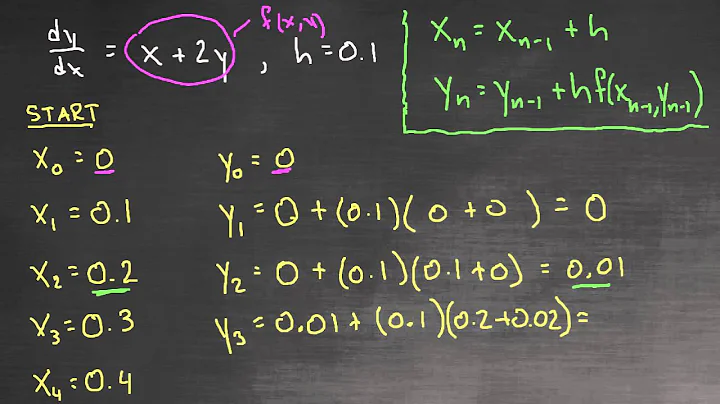 f(x,y)
dy/dx = x + 2y , h = 0.1
xₙ = xₙ₋₁ + h
yₙ = yₙ₋₁ + hf(xₙ₋₁,yₙ₋₁)
START
x₀ = 0 y₀ = 0
x₁ = 0.1 y₁ = 0 + (0.1)( 0 + 0 ) = 0
x₂ = 0.2 y₂ = 0 + (0.1)(0.1+0) = 0.01
x₃ = 0.3 y₃ = 0.01 + (0.1)(0.2+0.02) =
x₄ = 0.4